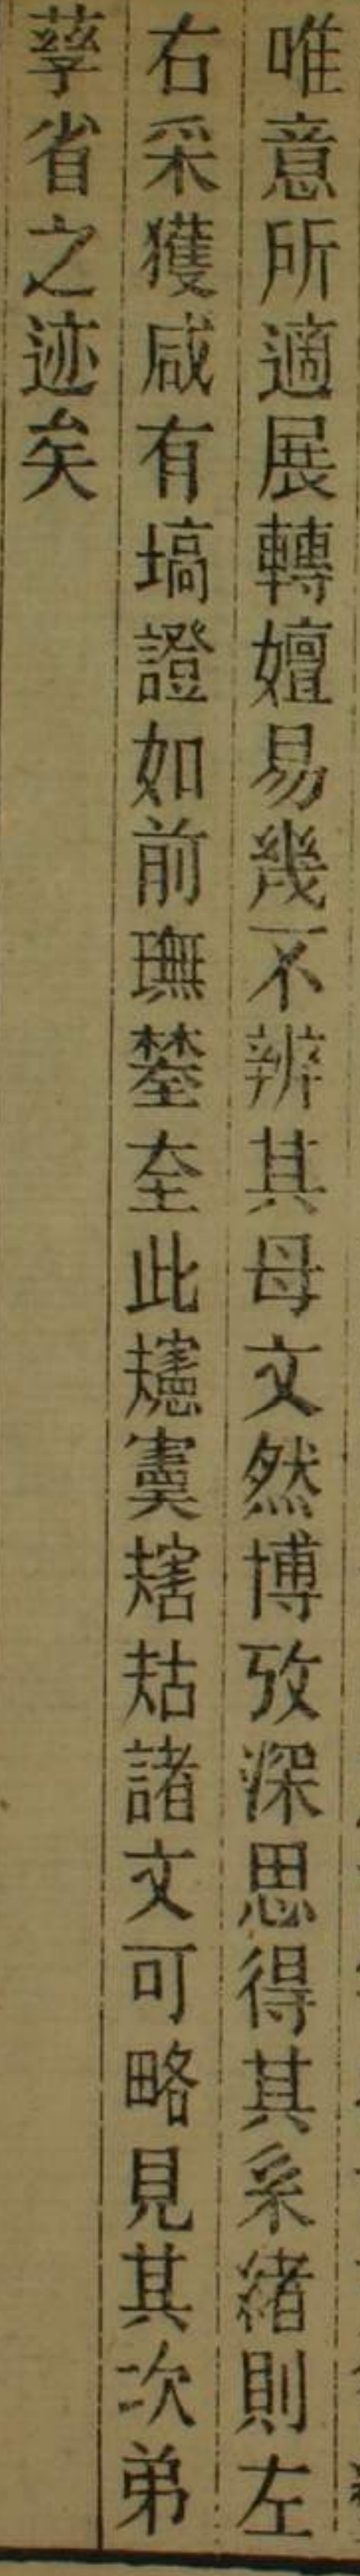 唯意所適展轉嬗易幾不辨其母文然博攷深思得其采緒則左
右采獲咸有塙證如前璑蓥㚅此𢝊𡫳𧧑𧦮諸文可略見其次弟
孳省之迹矣